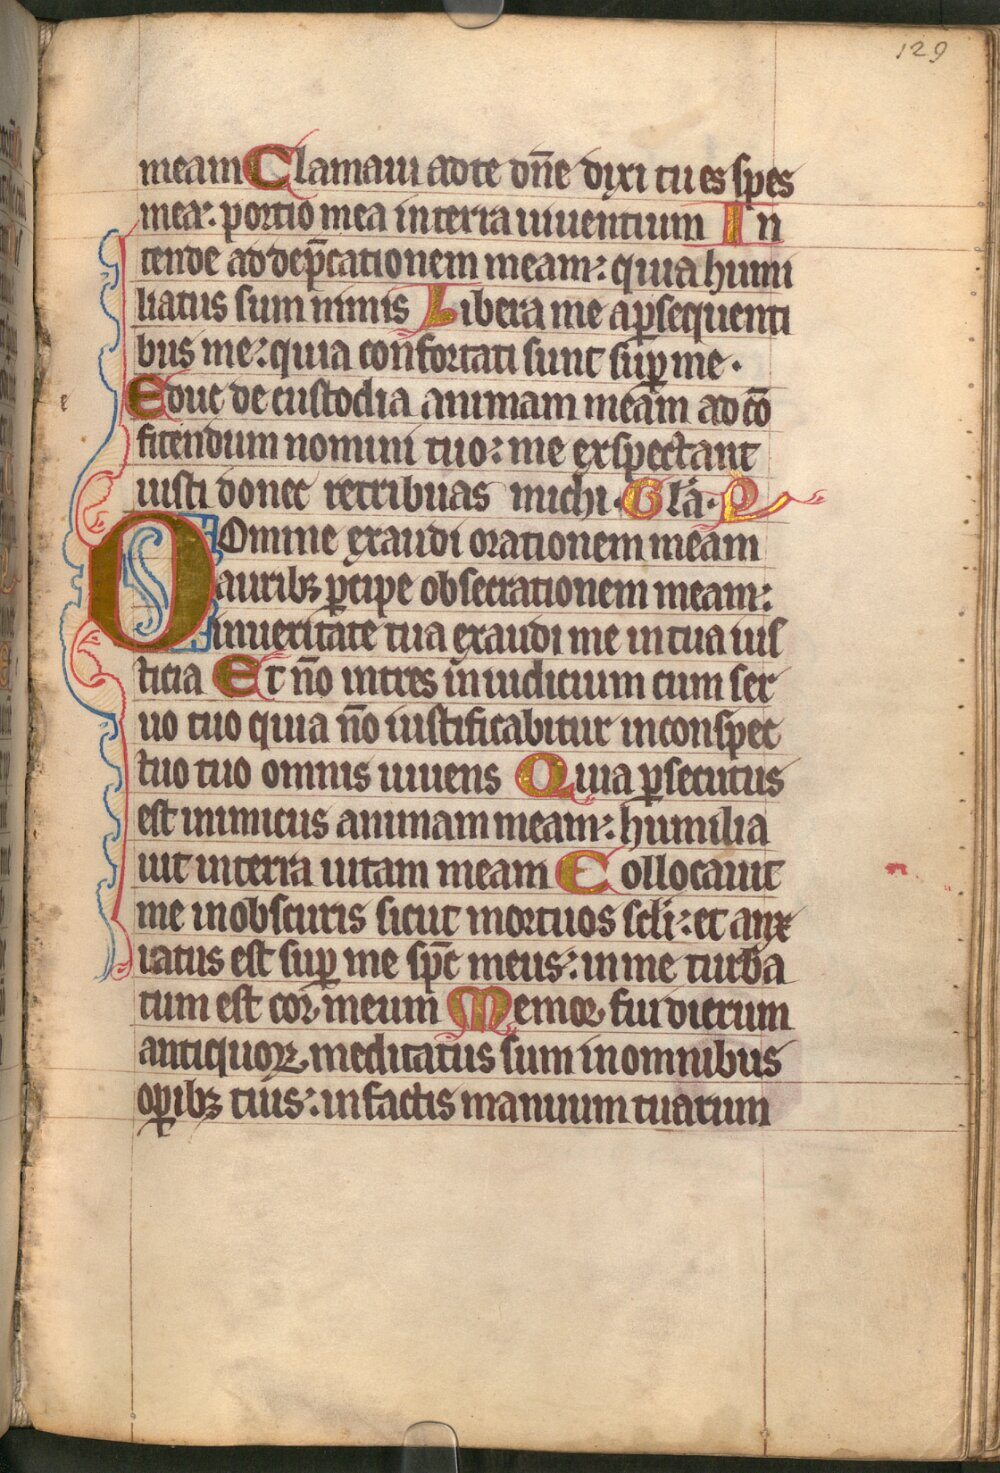 129
meam Clamaui ad te dñe dixi tu es spes
mea: portio mea in terra uiuentium In
tende ad dep̄cationem meam: quia humi
liatus sum nimis Libera me a ꝑsequenti
bus me: quia confortati sunt suꝑ me ·
Educ de custodia animam meam ad cō
fitendum nomini tuo: me exspectant
iusti donec retribuas michi · Gła · P
DOmine exaudi orationem meam
auribꝫ ꝑcipe obsecrationem meam:
in ueritate tua exaudi me in tua ius
ticia Et ño intres in iudicium cum ser
uo tuo quia ño iustificabitur in conspec
tuo tuo omnis uiuens Quia ꝑsecutus
est inimicus animam meam: humilia
uit in terra uitam meam Collocauit
me in obscuris sicut mortuos scłi: et anx
iatus est suꝑ me spc̄ meus: in me turba
tum est cor meum Memor fui dierum
antiquoꝝ meditatus sum in omnibus
oꝑibꝫ tuis: in factis manuum tuarum